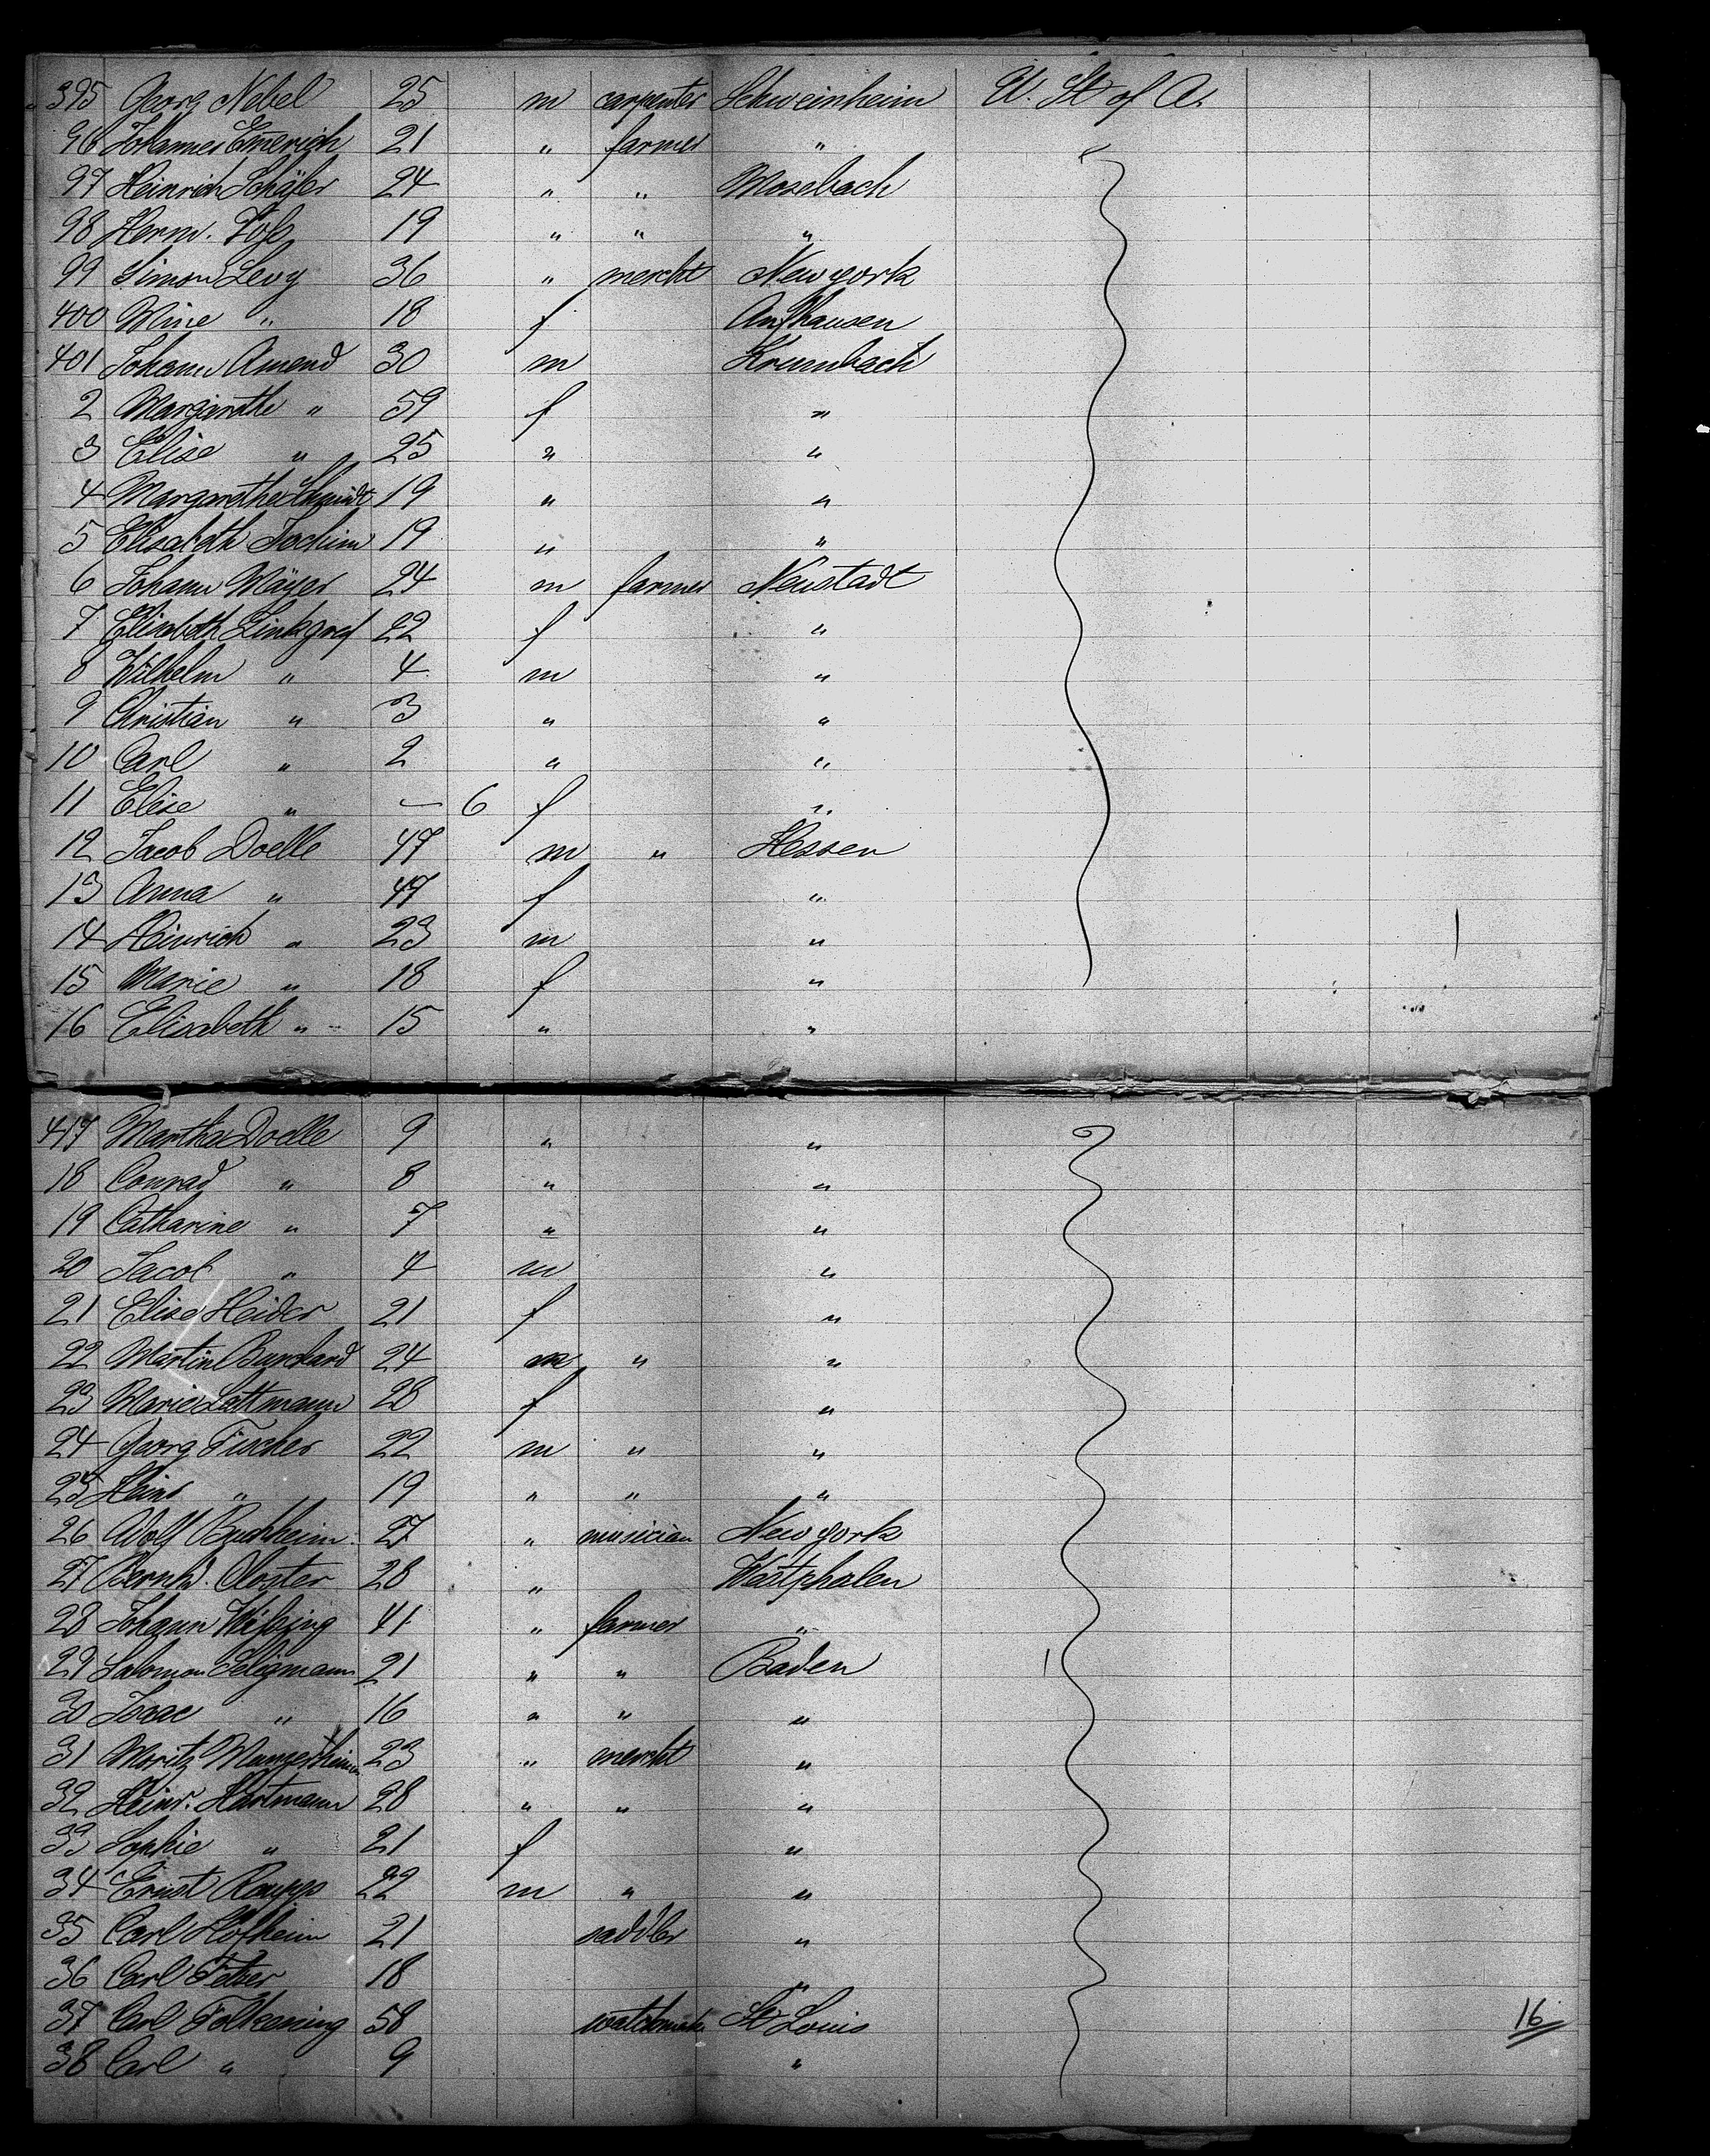 395 Georg Nebel 25 m carpenter Schweinheim U. St of A.
96 Johannes Emerich 21 " farmer "
97 Heinrich Schäfer 24 " " Mosebach
98 Herm. 19 " " "
99 Simon Levy 36 " mercht New york
400 Mine " 18 f Aufhausen
401 Johann Amend 30 m Krumbach
2 Margarethe " 59 f "
3 Elise " 25 " "
4 Margarethe Schmidt 19 " "
5 Elisabeth Jochim 19 " "
6 Johann Mäyer 24 m farmer Neustadt
7 Elisabeth Linkgraf 22 f "
8 Wilhelm " 4 m "
9 Christian " 3 " "
10 Carl " 2 " "
11 Elise " — 6 f "
12 Jacob Doelle 47 m " Hessen
13 Anna " 47 f "
14 Heinrich " 23 m "
15 Marie " 18 f "
16 Elisabeth " 15 " "
417 Martha Doelle 9 " "
18 Conrad " 8 " "
19 Catharine " 7 " "
20 Jacob " 4 m "
21 Elise Heider 21 f "
22 Martin Burchard 24 m " "
23 Marie Lattmann 28 f "
24 Georg Fischer 22 m " "
25 Heinr " 19 " " "
26 Wolf Buchheim 27 " musician New york
27 Bernhd. Closter 28 " Westphalen
28 Johann 41 " farmer "
29 Salomon Seligmann 21 " " Baden
30 Isaac " 16 " " "
31 Moritz 23 " mercht "
32 Heinr. Hartmann 28 " " "
33 Sophie " 21 f "
34 Ernst 22 m " "
35 Carl Hofheim 21 saddler "
36 Carl 18 "
37 Carl Folkening 58 watchmak St Louis
38 Carl " 9 "
16